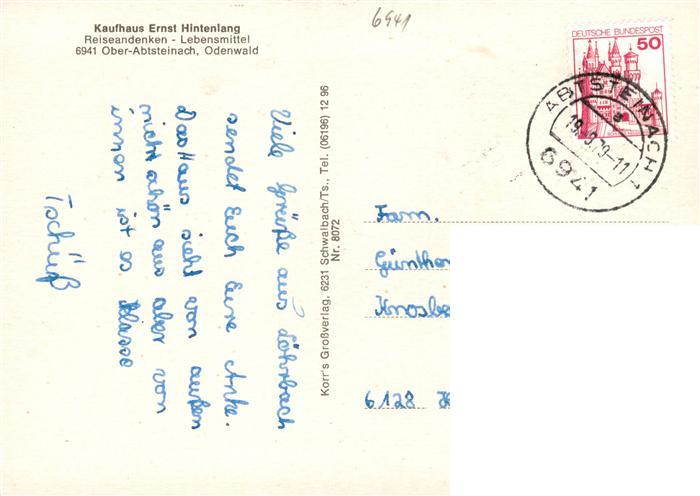 Kaufhaus Ernst Hintenlang
Reiseandenken - Lebensmittel
6941 Ober-Abtsteinach, Odenwald
6941
Viele Grüße aus Löhrbach
sendet Euch Eure Anke.
Das Haus sieht von außen
nicht schön aus aber von
innen ist es klasse
Tschüß
Korr's Großverlag, 6231 Schwalbach/Ts., Tel. (06196) 12 96
Nr. 8072
DEUTSCHE BUNDESPOST
50
ABTSTEINACH 1
a
6941
Fam.
6128